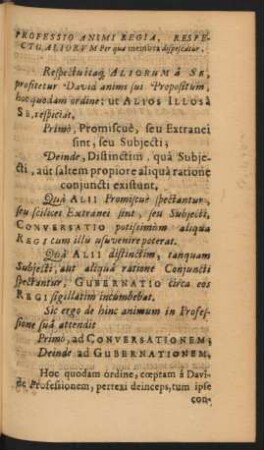 PROFESSIO ANIMI REGIA, RESPE-
CTU ALIORUM Per quæ membra dispescatur.
Respectu itaq; ALIORUM à SE,
profitetur David animo suo Propositum,
hoc quodam ordine; ut ALIOS ILLOS à
SE, respiciat.
Primò, Promiscuè, seu Extranei
sint, seu Subjecti;
Deinde, Distinctim, quà Subje-
cti, aut saltem propiore aliquâ ratione
conjuncti existunt.
Quà ALII Promiscuè spectantur,
seu scilicet Extranei sint, seu Subjecti,
CONVERSATIO potissimùm aliqua
REGI cum illis usuvenire poterat.
Quà ALII distinctim, tanquam
Subjecti, aut aliquâ ratione Conjuncti
spectantur, GUBERNATIO circa eos
REGI sigillatim incumbebat.
Sic ergo de hinc animum in Profes-
sione suâ attendit
Primò, ad CONVERSATIONEM;
Deinde ad GUBERNATIONEM.
Hoc quodam ordine, cœptam à Davi-
de Professionem, pertexi deinceps, tum ipse
con-